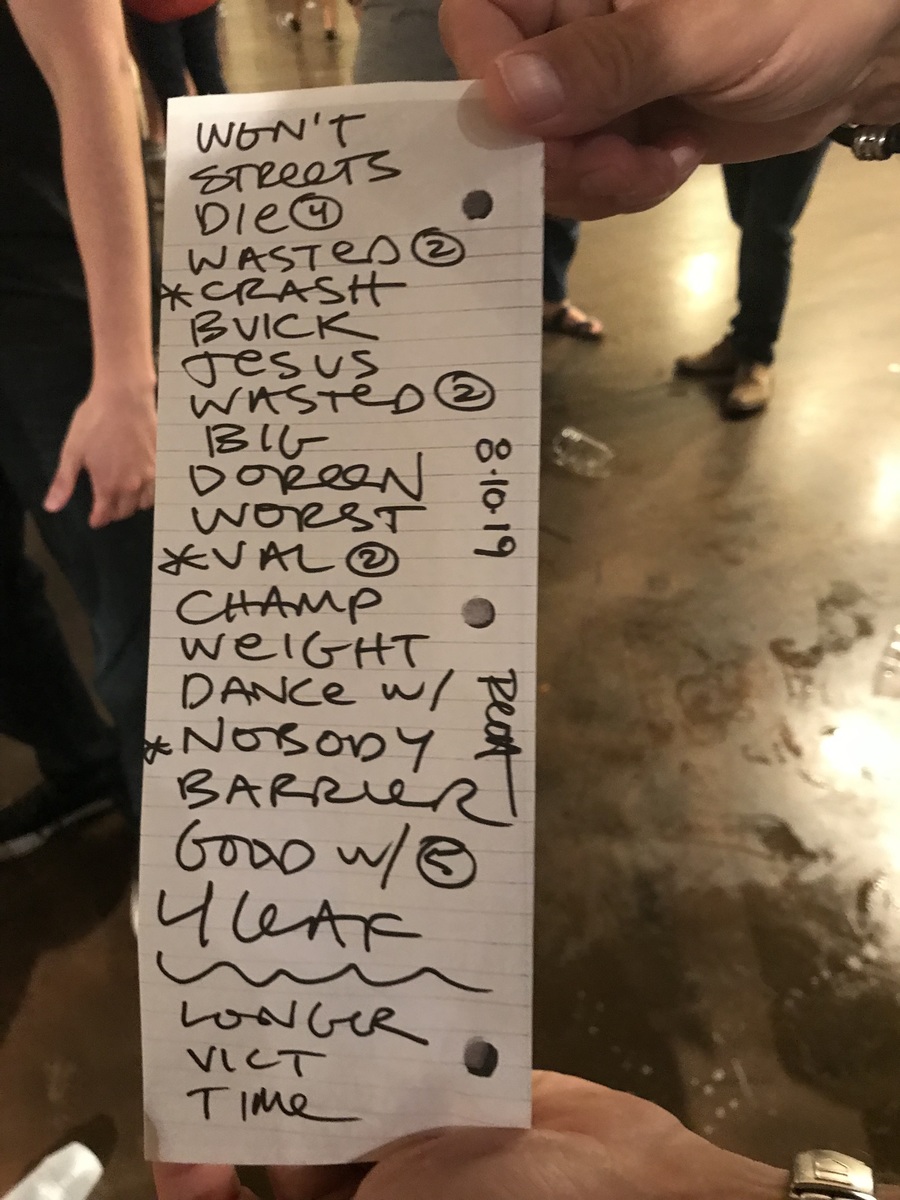 WON'T
STREETS
DIE ④
WASTED ②
*CRASH
BUICK
JESUS
WASTED ②
BIG
DOREEN
WORST
*VAL ②
CHAMP
WEIGHT
DANCE W/
*NOBODY
BARRIER
GOOD W/ ⑤
4 LEAF
LONGER
VICT
TIME
8.10.19